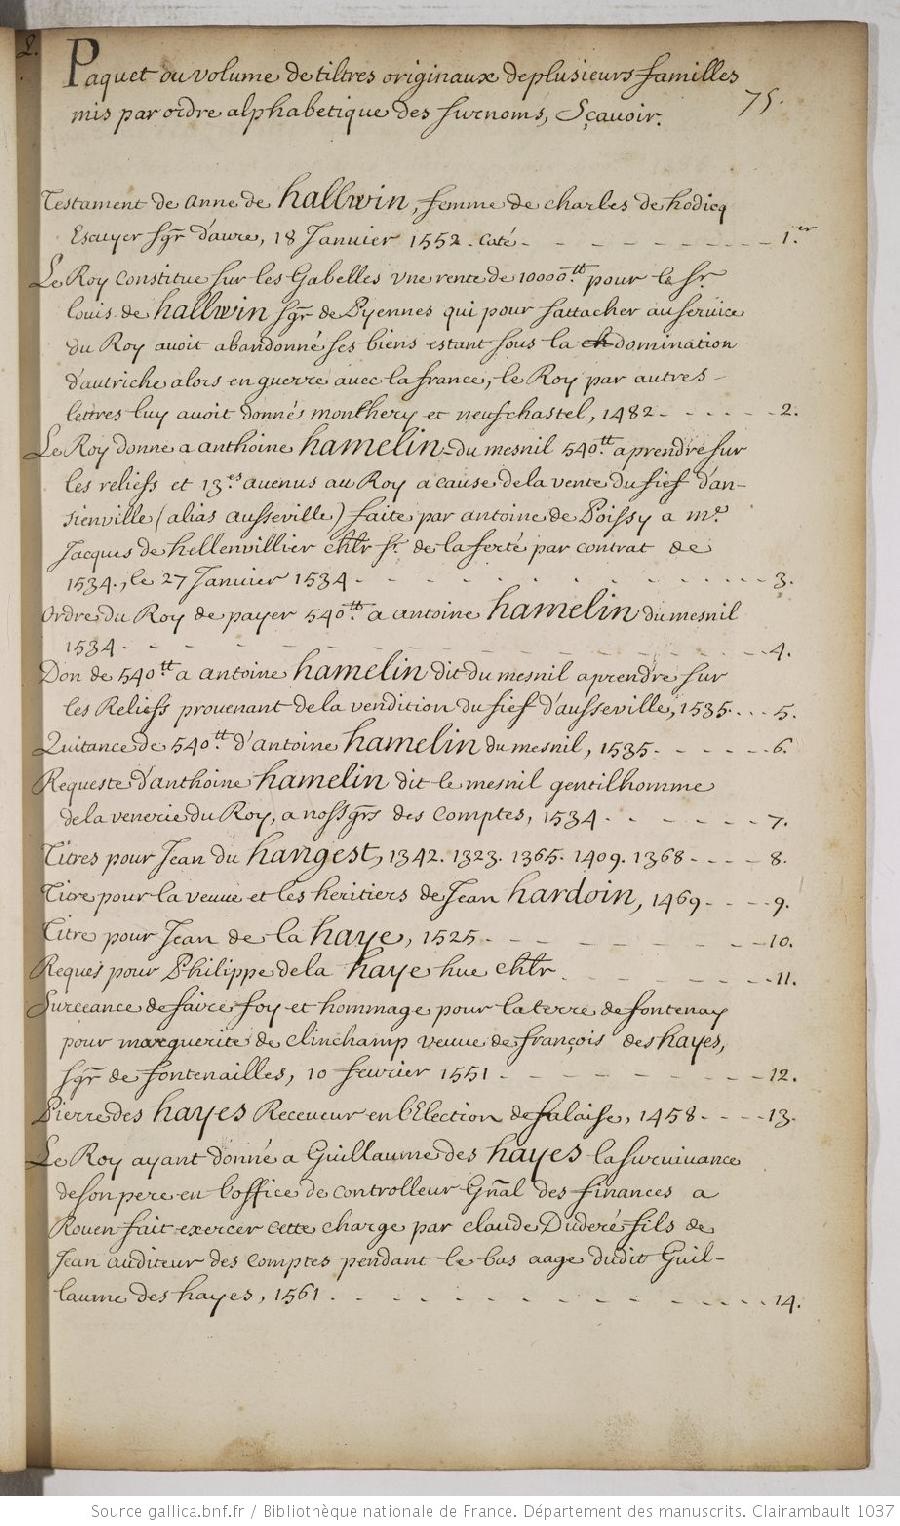 2.
Paquet ou volume de tiltres originaux de plusieurs familles
mis par ordre alphabetique des surnoms, Sçavoir.
75.
Testament de anne de hallwin, femme de charles de hodicq
Escuyer sgr d'aure, 18 Janvier 1552. Caté - - - - - - 1.er
Le Roy constitue sur les Gabelles une rente de 10000.tt pour le sr.
louis de hallwin sgr de Pyennes qui pour sattacher au service
du Roy avoit abandonné ses biens estant sous la domination
d'autriche alors en guerre avec la france, le Roy par autres
lettres luy avoit donnés monthery et neufchastel, 1482 - - - - - 2.
Le Roy donne a anthoine hamelin du mesnil 540.tt a prendre sur
les reliefs et 13.es avenus au Roy a cause de la vente du fief d'an-
sienville (alias ausseville) faite par antoine de Poissy a m.e
Jacques de hellenvillier chlr sr. de la ferté par contrat de
1534., le 27 Janvier 1534 - - - - - - - - - 3.
Ordre du Roy de payer 540.tt a antoine hamelin du mesnil
1534 - - - - - - - - - - - - 4.
Don de 540.tt a antoine hamelin dit du mesnil a prendre sur
les Reliefs provenant de la vendition du fief d'ausseville, 1535. . . . 5.
Quitance de 540.tt d'antoine hamelin du mesnil, 1535 - - - - - 6.
Requeste d'anthoine hamelin dit le mesnil gentilhomme
de la venerie du Roy, a nossgrs des Comptes, 1534 - - - - - 7.
Titres pour Jean du hangest, 1342. 1323. 1365. 1409. 1368 - - - - 8.
Titre pour la veuve et les heritiers de Jean hardoin, 1469 - - - - 9.
Titre pour Jean de la haye, 1525 - - - - - - - 10.
Reques pour Philippe de la haye hue chlr - - - - - - 11.
Surceance de faire foy et hommage pour la terre de fontenay
pour marguerite de Clinchamp veuve de françois des hayes,
sgr de fontenailles, 10 fevrier 1551 - - - - - - - 12.
Pierre des hayes Receveur en l'Election de falaise, 1458 - - - - 13.
Le Roy ayant donné a Guillaume des hayes la survivance
de son pere en l'office de controlleur Gñal des finances a
Rouen fait exercer cette charge par claude Duderé fils de
Jean auditeur des comptes pendant le bas aage dudit Guil-
laume des hayes, 1561 - - - - - - - - - - 14.
Source gallica.bnf.fr / Bibliothèque nationale de France. Département des manuscrits. Clairambault 1037